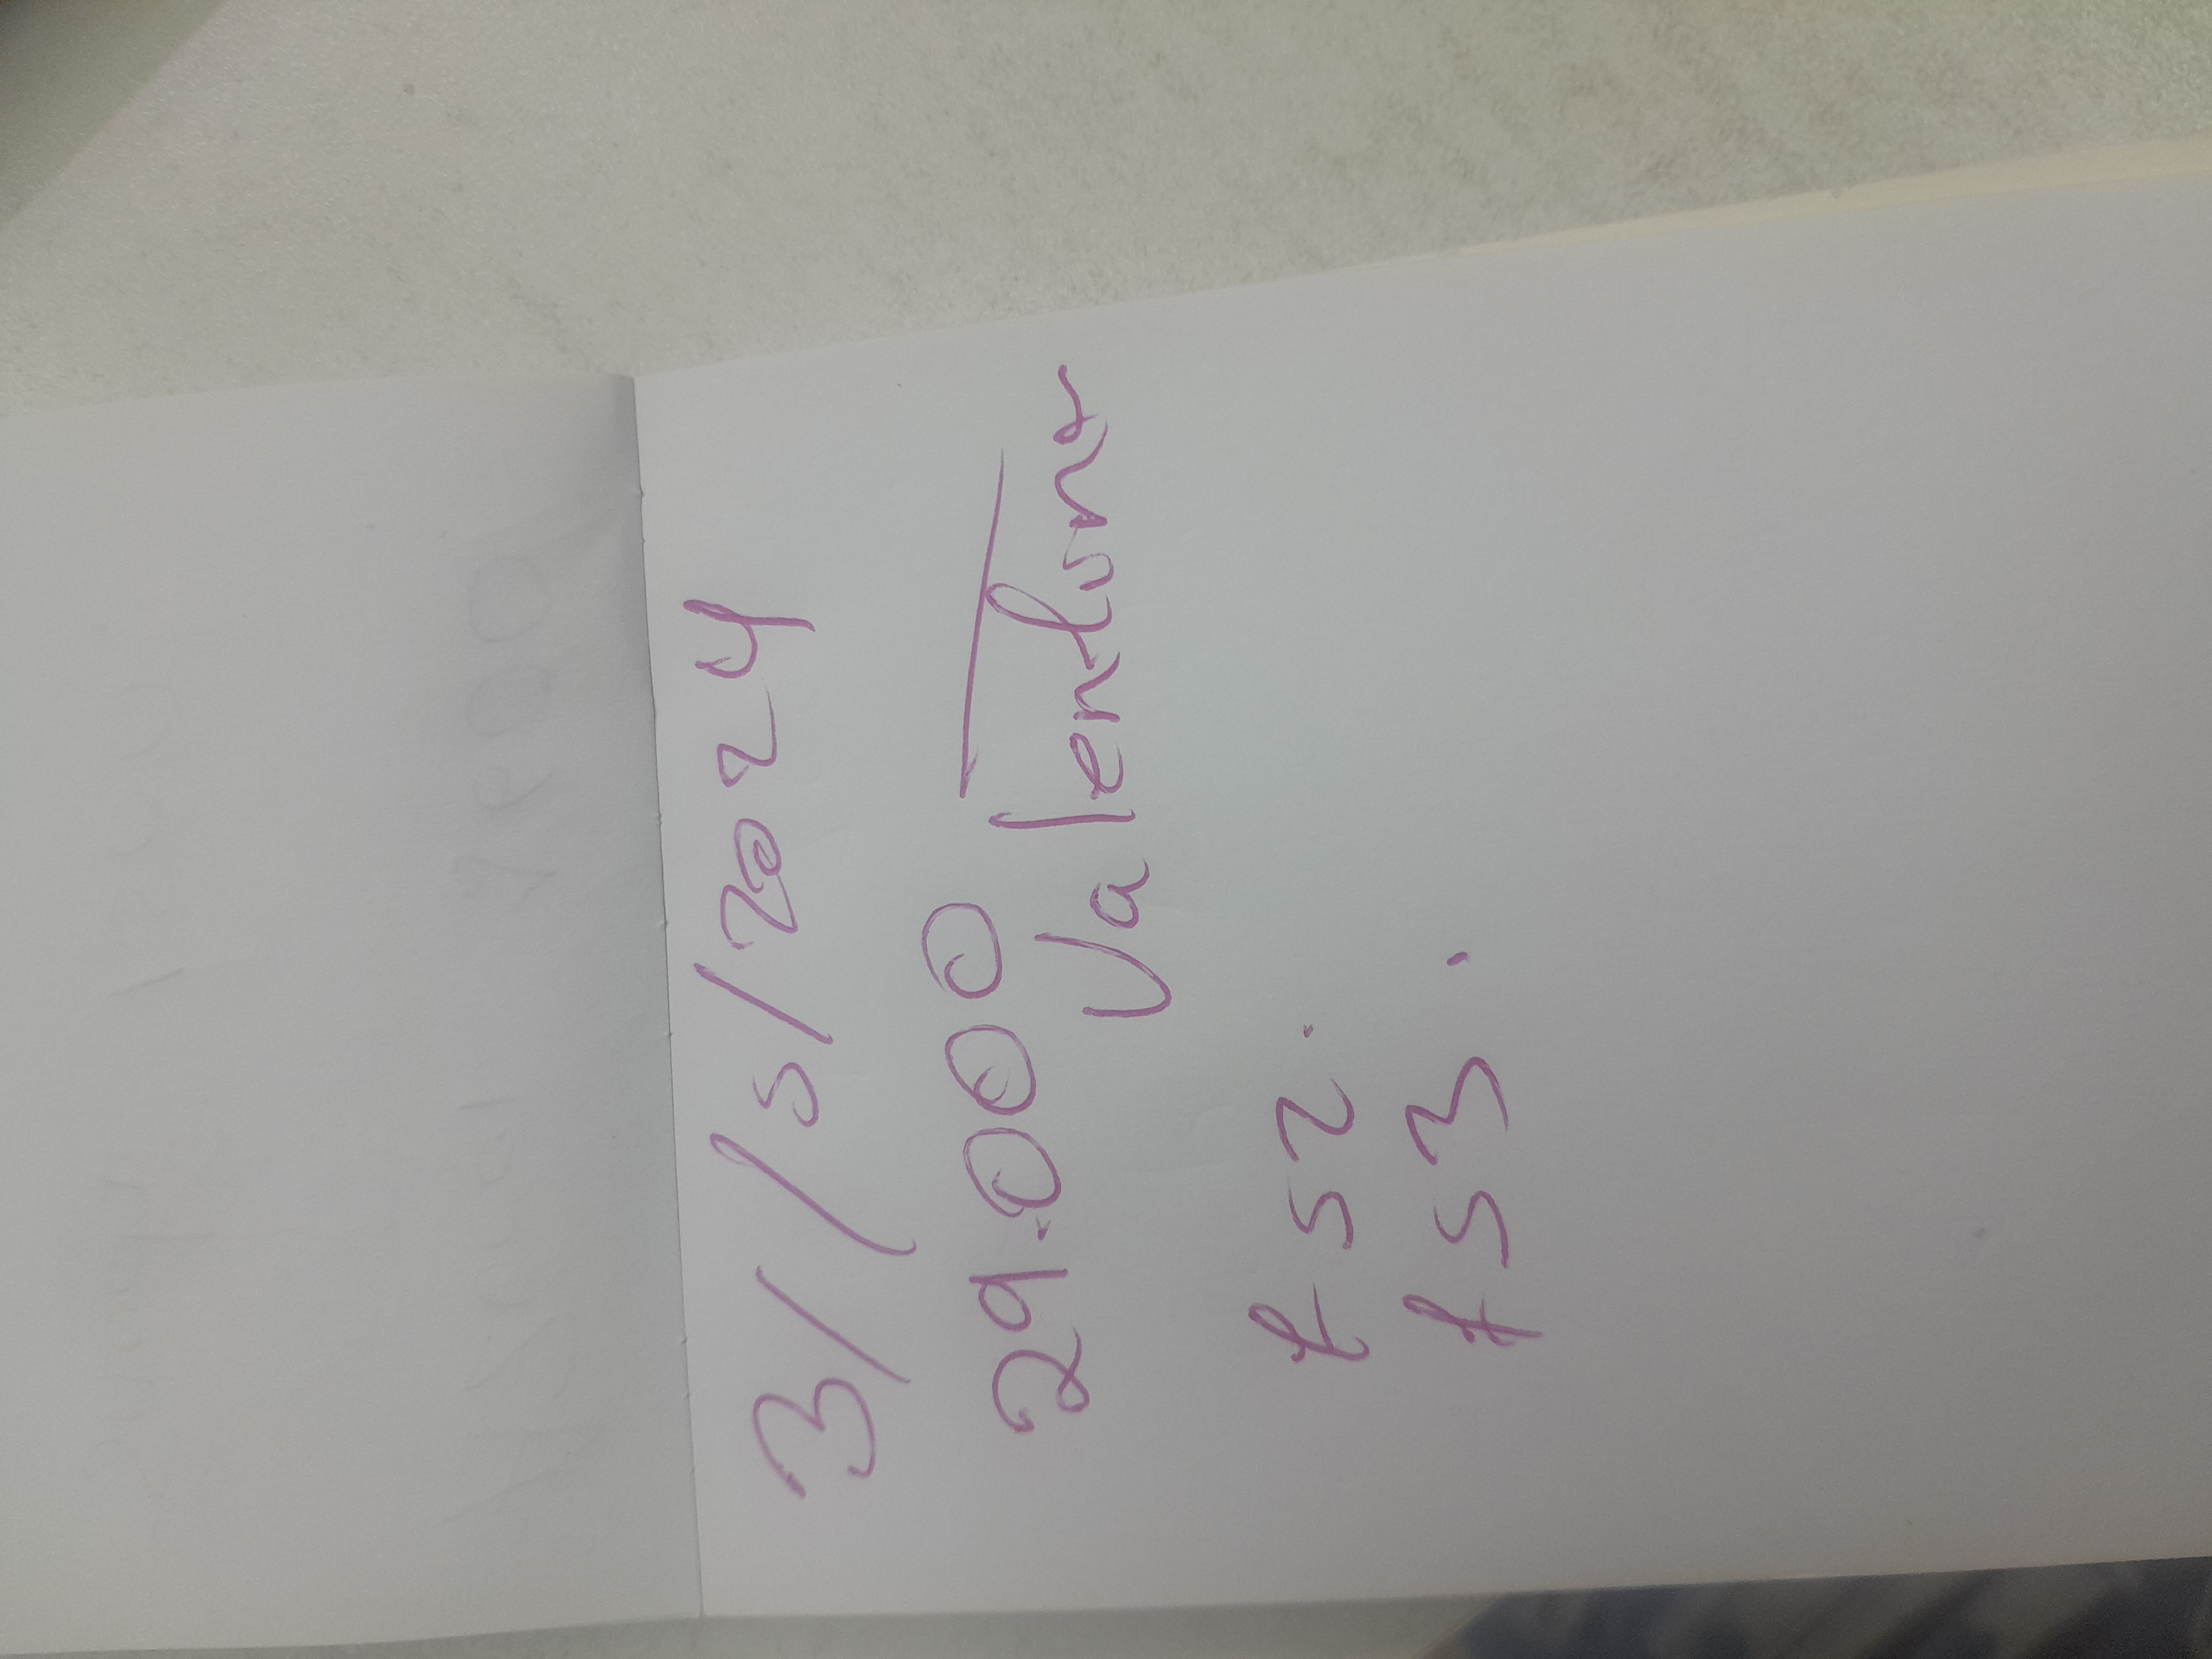 3/ /5/2024
29.000
Valentina
f 52.
f 53.